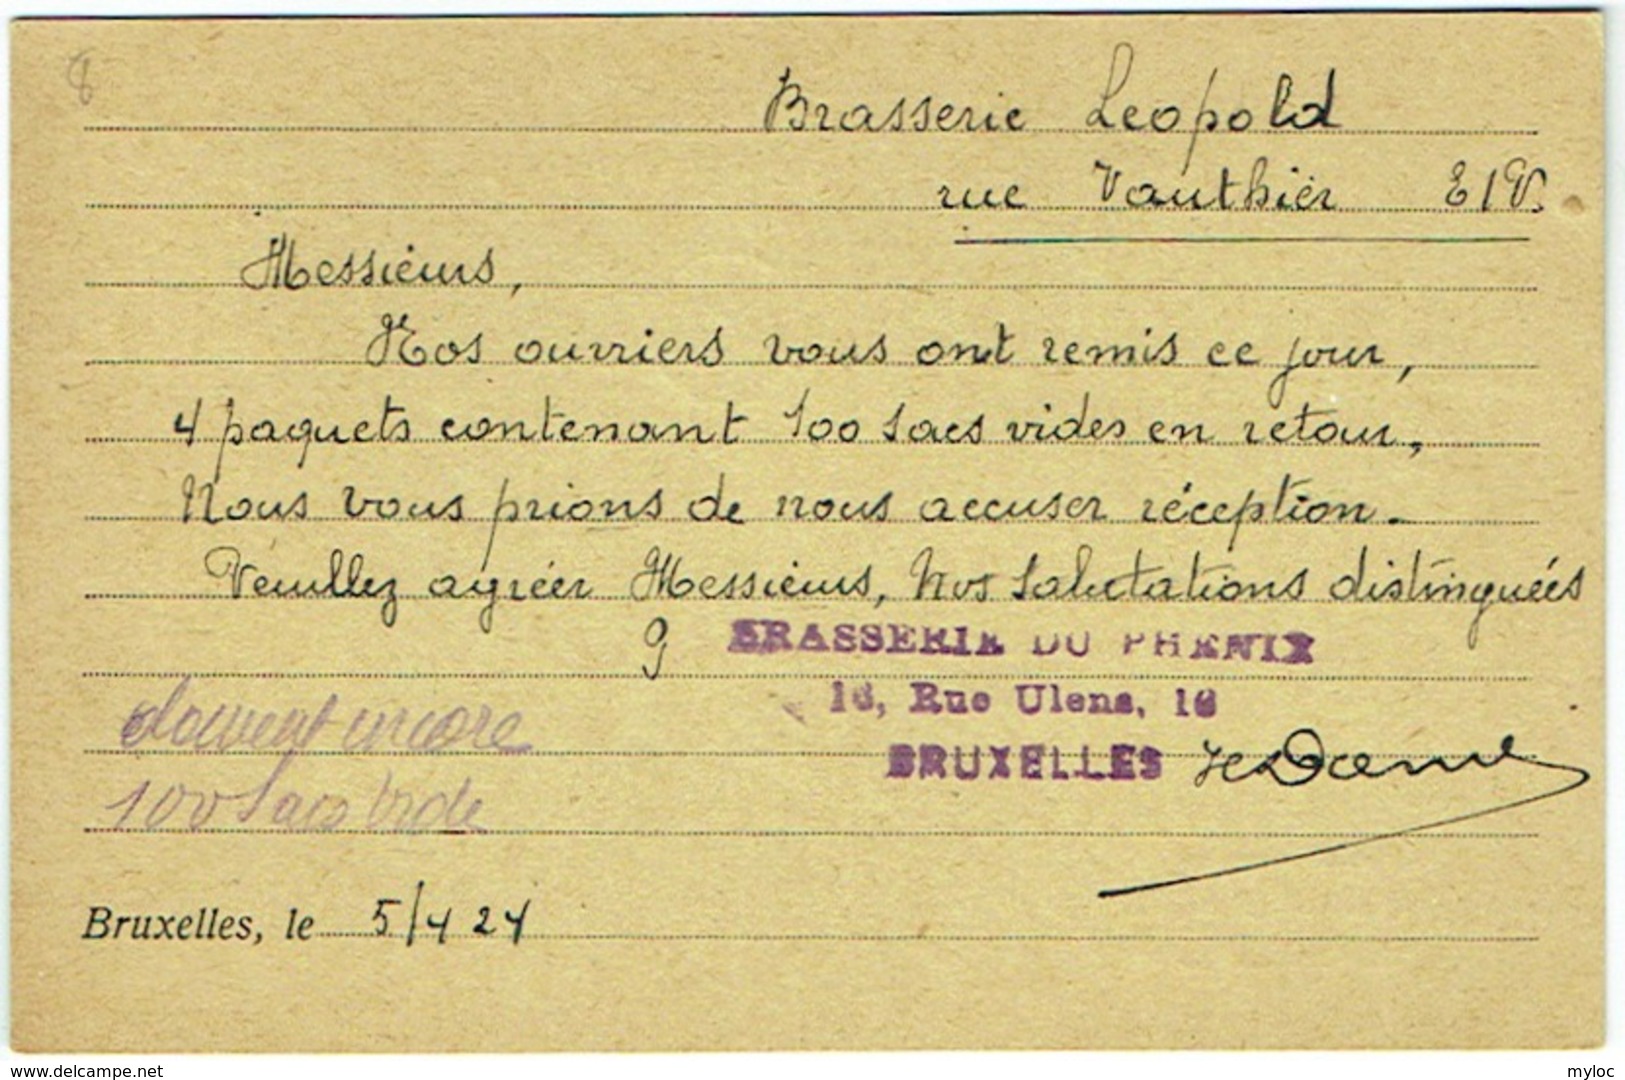 8
Brasserie Leopold
rue Vauthier E/V.
Messieurs,
Nos ouvriers vous ont remis ce jour,
4 paquets contenant 100 sacs vides en retour,
Nous vous prions de nous accuser réception.
Veuillez agréer Messieurs, nos salutations distinguées
BRASSERIE DU PHENIX
16, Rue Ulens, 16
BRUXELLES
doivent encore
100 Sacs Vide
Bruxelles, le 5/4 24
www.delcampe.net
myloc